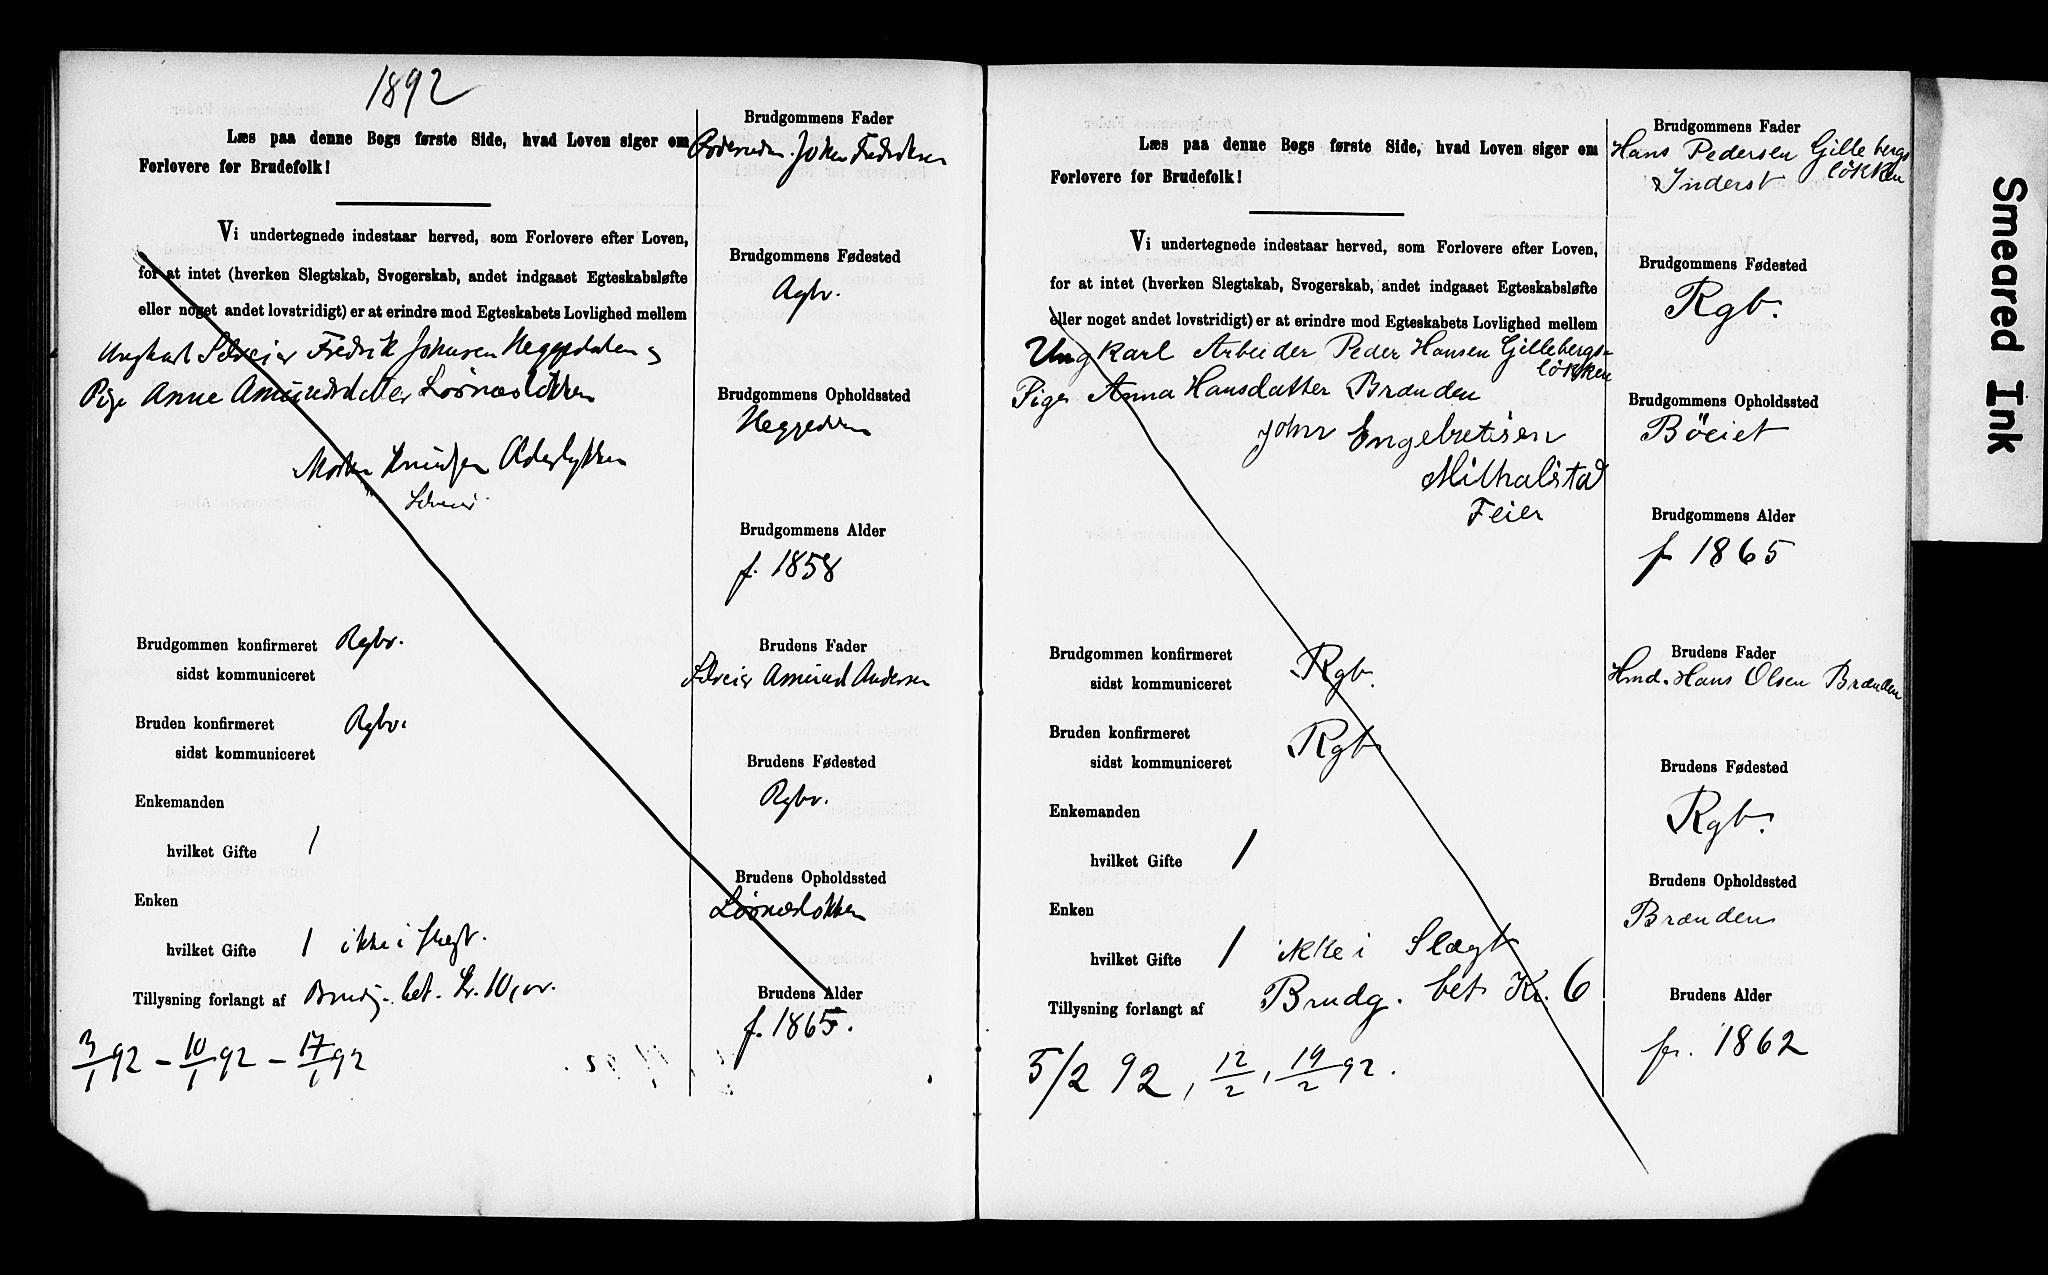 1892
Læs paa denne Bogs første Side, hvad Loven siger om
Forlovere for Brudefolk!
Vi undertegnede indestaar herved, som Forlovere efter Loven,
for at intet (hverken Slegtskab, Svogerskab, andet indgaaet Egteskabsløfte
eller noget andet lovstridigt) er at erindre mod Egteskabets Lovlighed mellem
Ungkarl Selveier Fredrik Johnsen Heggedalen og
Pige Anne Amundsdatter
Morten Knudsen
Selveier
Brudgommen konfirmeret Rgbr.
sidst kommuniceret
Bruden konfirmeret Rgbr.
sidst kommuniceret
Enkemanden
hvilket Gifte 1
Enken
hvilket Gifte 1 ikke i Slegt.
Tillysning forlangt af Brudg. bet. Kr. 10,00.
3/1 92 – 10/1 92 – 17/1 92
Brudgommens Fader
John Fredriksen
Brudgommens Fødested
Rgbr.
Brudgommens Opholdssted
Heggedalen
Brudgommens Alder
f. 1858
Brudens Fader
Selveier Amund Andersen
Brudens Fødested
Rgbr.
Brudens Opholdssted
Brudens Alder
f. 1865.
Læs paa denne Bogs første Side, hvad Loven siger om
Forlovere for Brudefolk!
Vi undertegnede indestaar herved, som Forlovere efter Loven,
for at intet (hverken Slegtskab, Svogerskab, andet indgaaet Egteskabsløfte
eller noget andet lovstridigt) er at erindre mod Egteskabets Lovlighed mellem
Ungkarl Arbeider Peder Hansen Gillebergs-
løkken
Pige Anna Hansdatter Brænden
John Engebretsen
Feier
Brudgommen konfirmeret Rgb.
sidst kommuniceret
Bruden konfirmeret Rgb.
sidst kommuniceret
Enkemanden
hvilket Gifte 1
Enken
hvilket Gifte 1 ikke i Slægt
Tillysning forlangt af Brudg. bet Kr. 6
5/2 92, 12/2, 19/2 92.
Brudgommens Fader
Hans Pedersen Gillebergs
løkken
Inderst
Brudgommens Fødested
Rgb.
Brudgommens Opholdssted
Böeiet
Brudgommens Alder
f 1865
Brudens Fader
Hmd. Hans Olsen Brænden
Brudens Fødested
Rgb.
Brudens Opholdssted
Brænden
Brudens Alder
fr. 1862
Smeared Ink